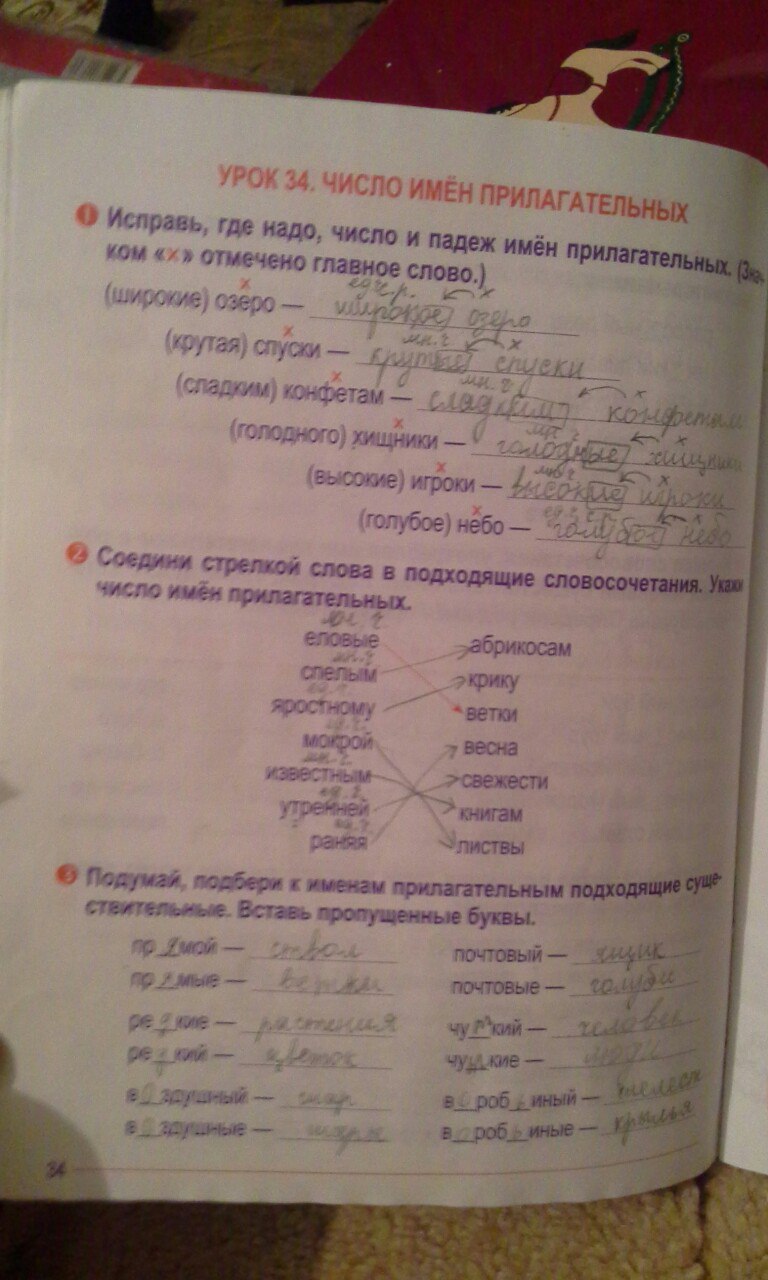 УРОК 34. ЧИСЛО ИМЁН ПРИЛАГАТЕЛЬНЫХ
1 Исправь, где надо, число и падеж имён прилагательных. (Знач-
ком «×» отмечено главное слово.)
ед.ч. х
(широкие) озеро — широкое озеро
мн.ч. х
(крутая) спуски — крутые спуски
мн.ч. х
(сладким) конфетам — сладким конфетам
мн.ч. х
(голодного) хищники — голодные хищники
мн.ч. х
(высокие) игроки — высокие игроки
ед.ч. х
(голубое) небо — голубое небо
2 Соедини стрелкой слова в подходящие словосочетания. Укажи
число имён прилагательных.
мн. ч
еловые абрикосам
мн.ч
спелым крику
ед.ч.
яростному ветки
ед.ч.
мокрой весна
мн.ч.
известным свежести
ед.ч.
утренней книгам
ед.ч
ранняя листвы
3 Подумай, подбери к именам прилагательным подходящие суще-
ствительные. Вставь пропущенные буквы.
прямой — ствол почтовый — ящик
прямые — ветки почтовые — голуби
редкие — растения чуткий — человек
редкий — цветок чуткие — люди
воздушный — шар воробьиный —
воздушные — шары воробьиные — крылья
34